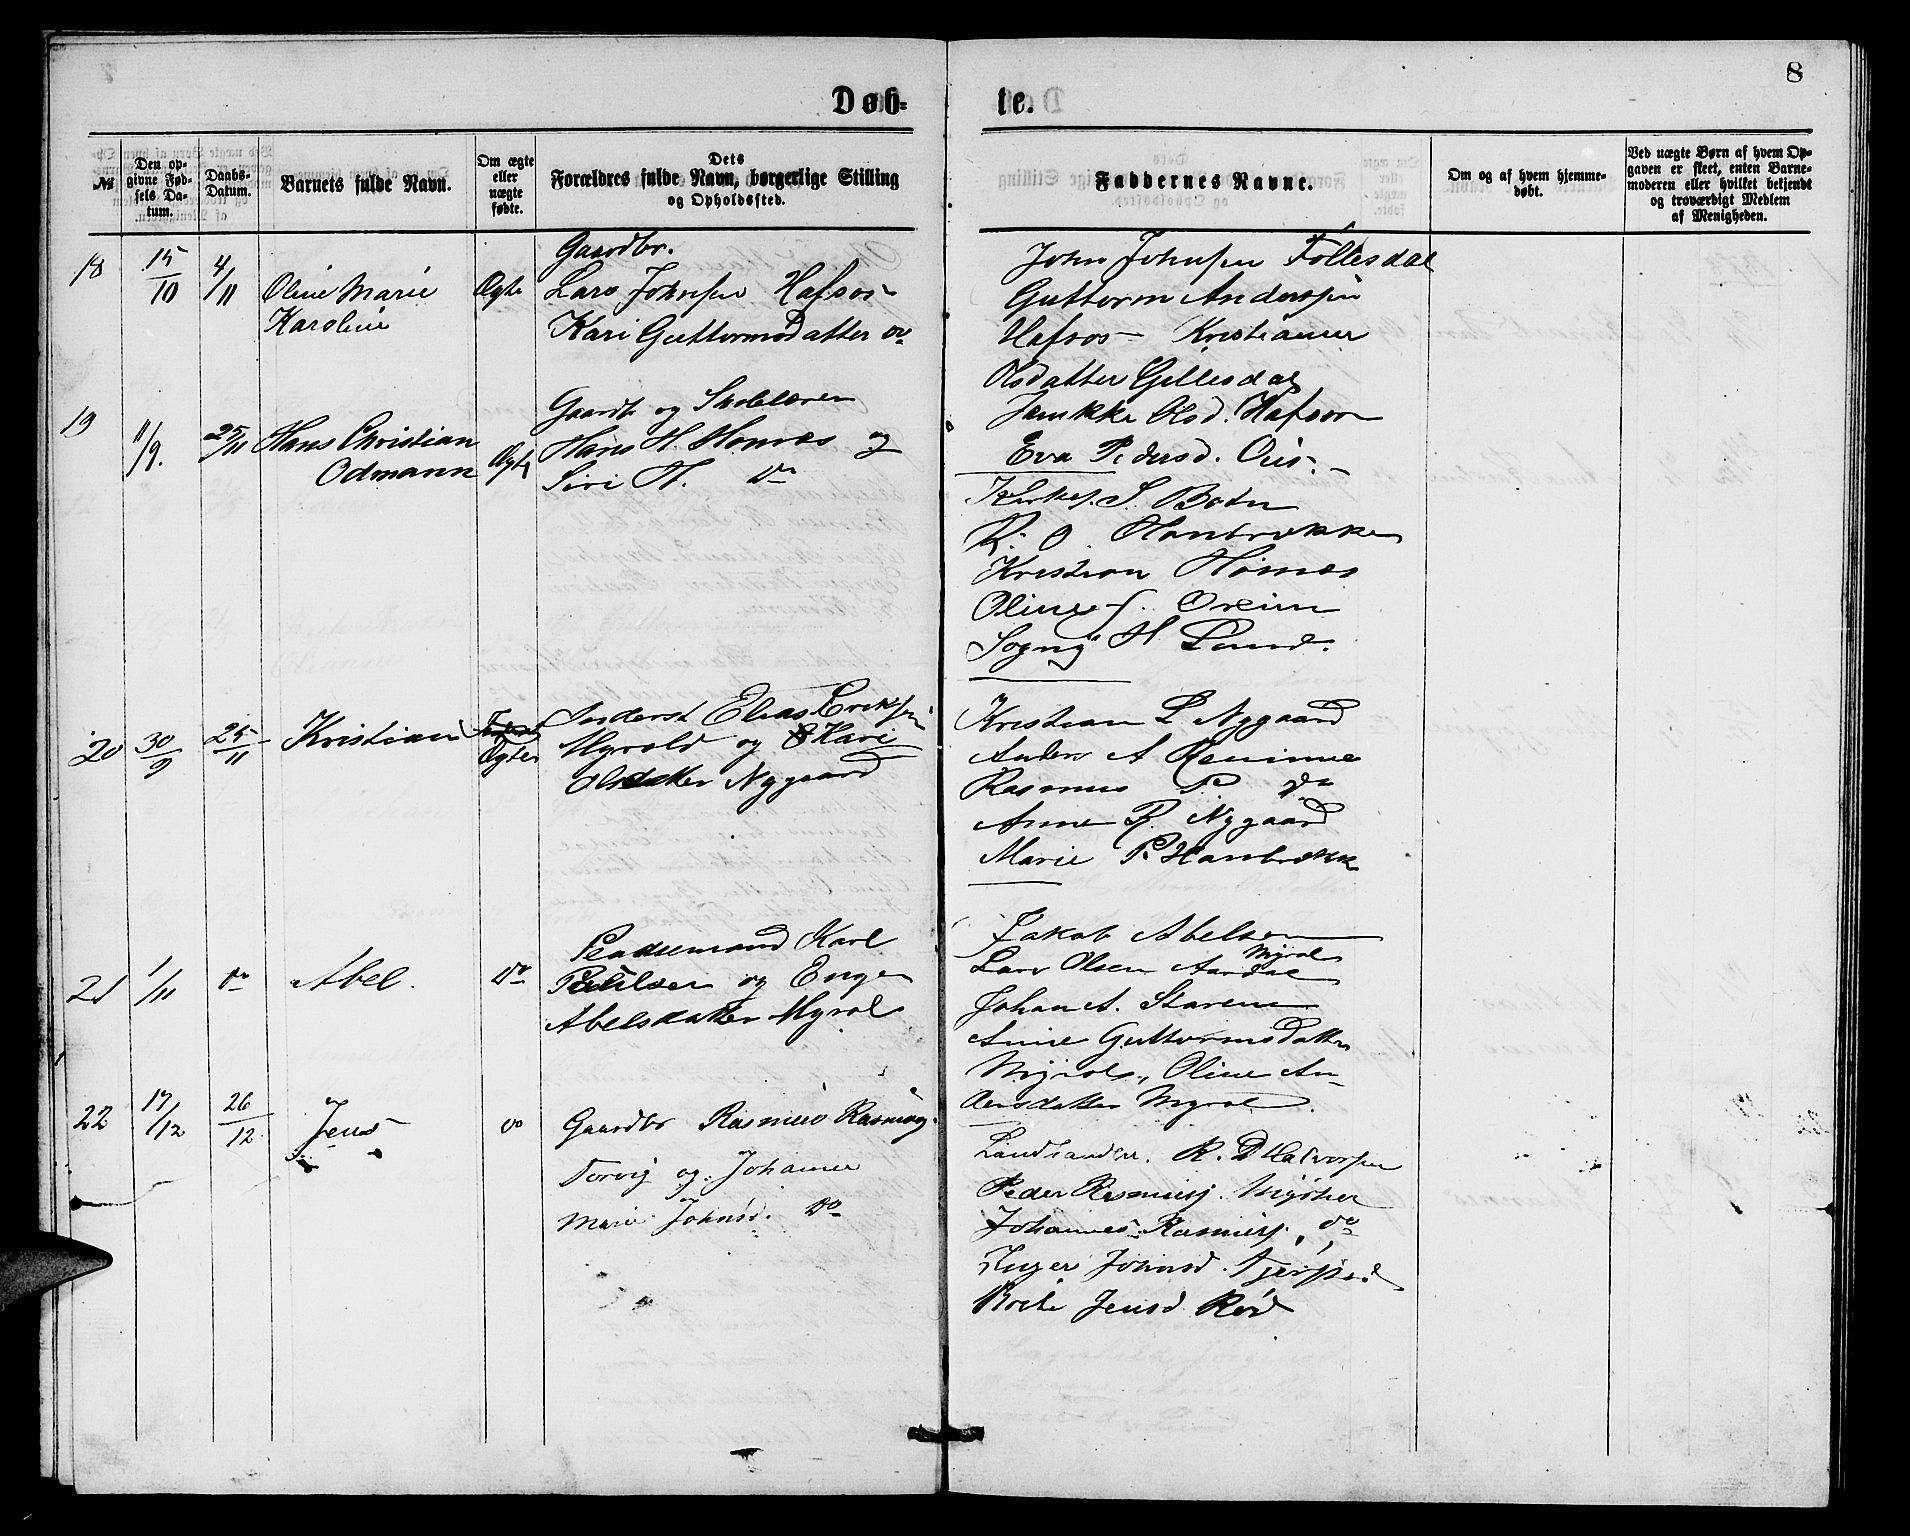 8
Døb-
te.
№
Den op-
givne Fød-
sels Da-
tum.
Daabs-
Datum.
Barnets fulde Navn.
Om ægte
eller
uægte
fødte.
Dets
Forældres fulde Navn, borgerlige Stilling
og Opholdssted.
Faddernes Navne.
Om og af hvem hjemme-
døbt.
Ved uægte Børn af hvem Op-
gaven er skeet, enten Barne-
moderen eller hvilket bekjendt
og troværdigt Medlem
af Menigheden.
18
15/10
4/11
Oline Marie
Karoline
Ægte
Gaardbr.
Lars Johnsen Hafsos
Kari Guttormsdatter do
John Johnsen Föllesdal
Guttorm Anderssen
Hafsos Kristianne
Olsdatter Gillesdal
Olsd. Hafsos
Eva Pedersd. Ous
19
11/9.
25/11
Hans Christian
Odmann
Ægte
Gaardb og Skolelærer
Hans H. Homes og
Siri H. Do
Kirkes. S. Botn
R. O. Hanbrekke
Kristian Homes
Oline J. Oreim
H Lund.
20
30/9
25/11
Kristian
Ægte
Inderst Elias Eriksen
Myrold og Kari
Olsdatter Nygaard
Kristian L. Nygaard
Anders A Remme
Rasmus P. do
Anne R. Nygaard
Marie P. Hanbrekk
21
1/11
do
Abel.
Do
Pladsemand Karl
Paulsen og Inger
Abelsdatter Myrol
Jakob Abelsen
Myrol
Lars Olsen Aardal
Johan A. Starem
Anne Guttormsdatter
Myrol, Oline An-
dersdatter Myrol.
22
17/12
26/12
Jens
do
Gaardbr Rasmus Rasmus.
Torvig og Johanne
Marie Johnsd. Do
Landhandler. R. D Halvorsen
Peder Rasmusj. Myhre
Johannes Rasmusj. do
Inger Johnsd.
Brite Jensd Rød